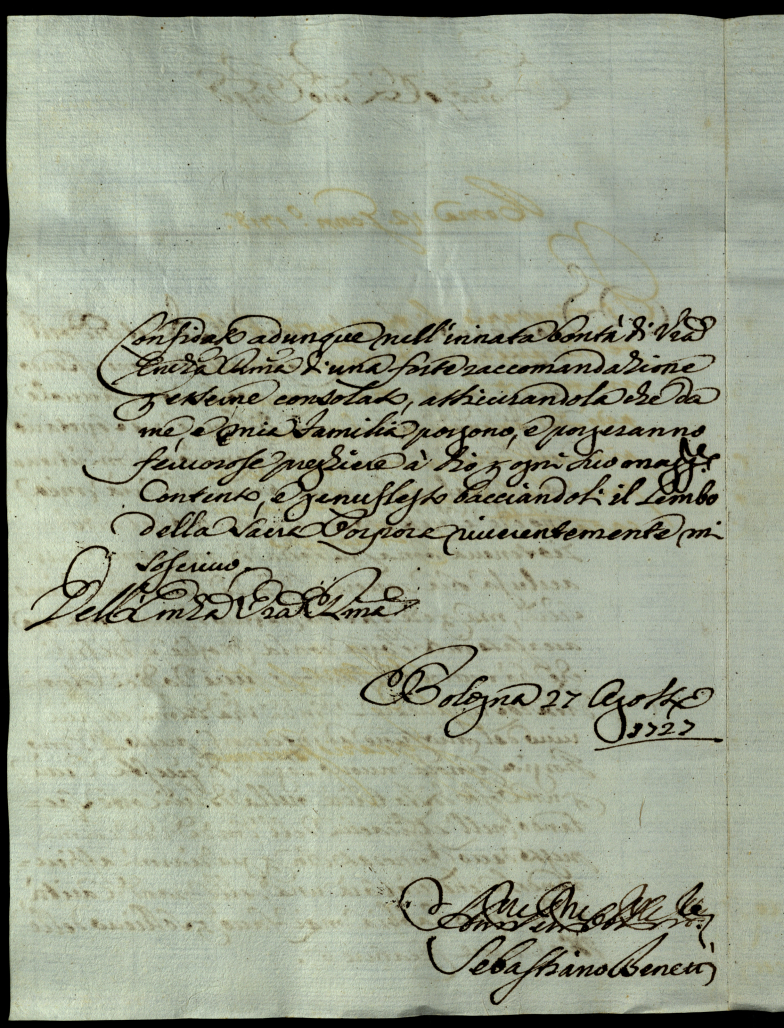 Confidato adunque nell'innata bontà di V.ra
Em.za Ill.ma di una forte raccomandazione
p esserne consolato, assicurandola che da
me, e mia familia porgono, e porgeranno
feruorose preghiere à Dio p ogni suo magg.re
Contento, e genuflesto bacciandoli il Lembo
della Sacra Porpora riuerentemente mi
soscriuo.
Dell'Em.za V.ra Ill.ma
Bologna 27 Agosto
1727
Sebastiano Benetti